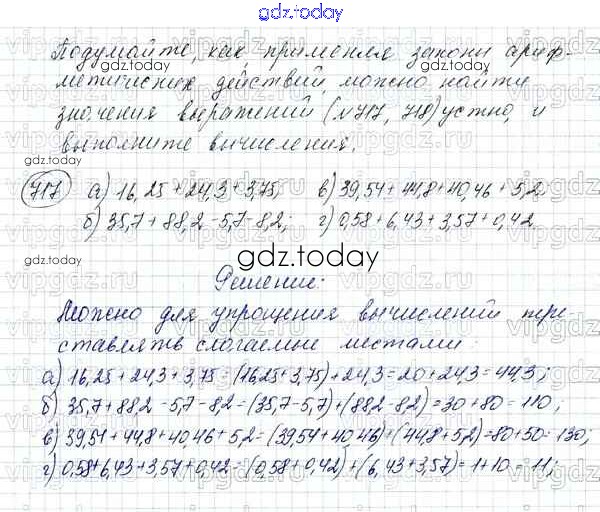 gdz.today
Подумайте, как, применяя законы ариф-
метических действий, можно найти
значения выражений (№717, 718) устно, и
выполните вычисления.
gdz.today
717 а) 16,25+24,3+3,75; в) 39,54+44,8+40,46+5,2
б) 35,7+88,2-5,7-8,2; г) 0,58+6,43+3,57+0,42.
gdz.today
Решение:
Можно для упрощения вычислений пере-
ставлять слогаемые местами:
а) 16,25+24,3+3,75=(16,25+3,75)+24,3=20+24,3=44,3;
б) 35,7+88,2-5,7-8,2=(35,7-5,7)+(88,2-8,2)=30+80=110;
в) 39,54+44,8+40,46+5,2=(39,54+40,46)+(44,8+5,2)=80+50=130;
г) 0,58+6,43+3,57+0,42=(0,58+0,42)+(6,43+3,57)=1+10=11;
gdz.today